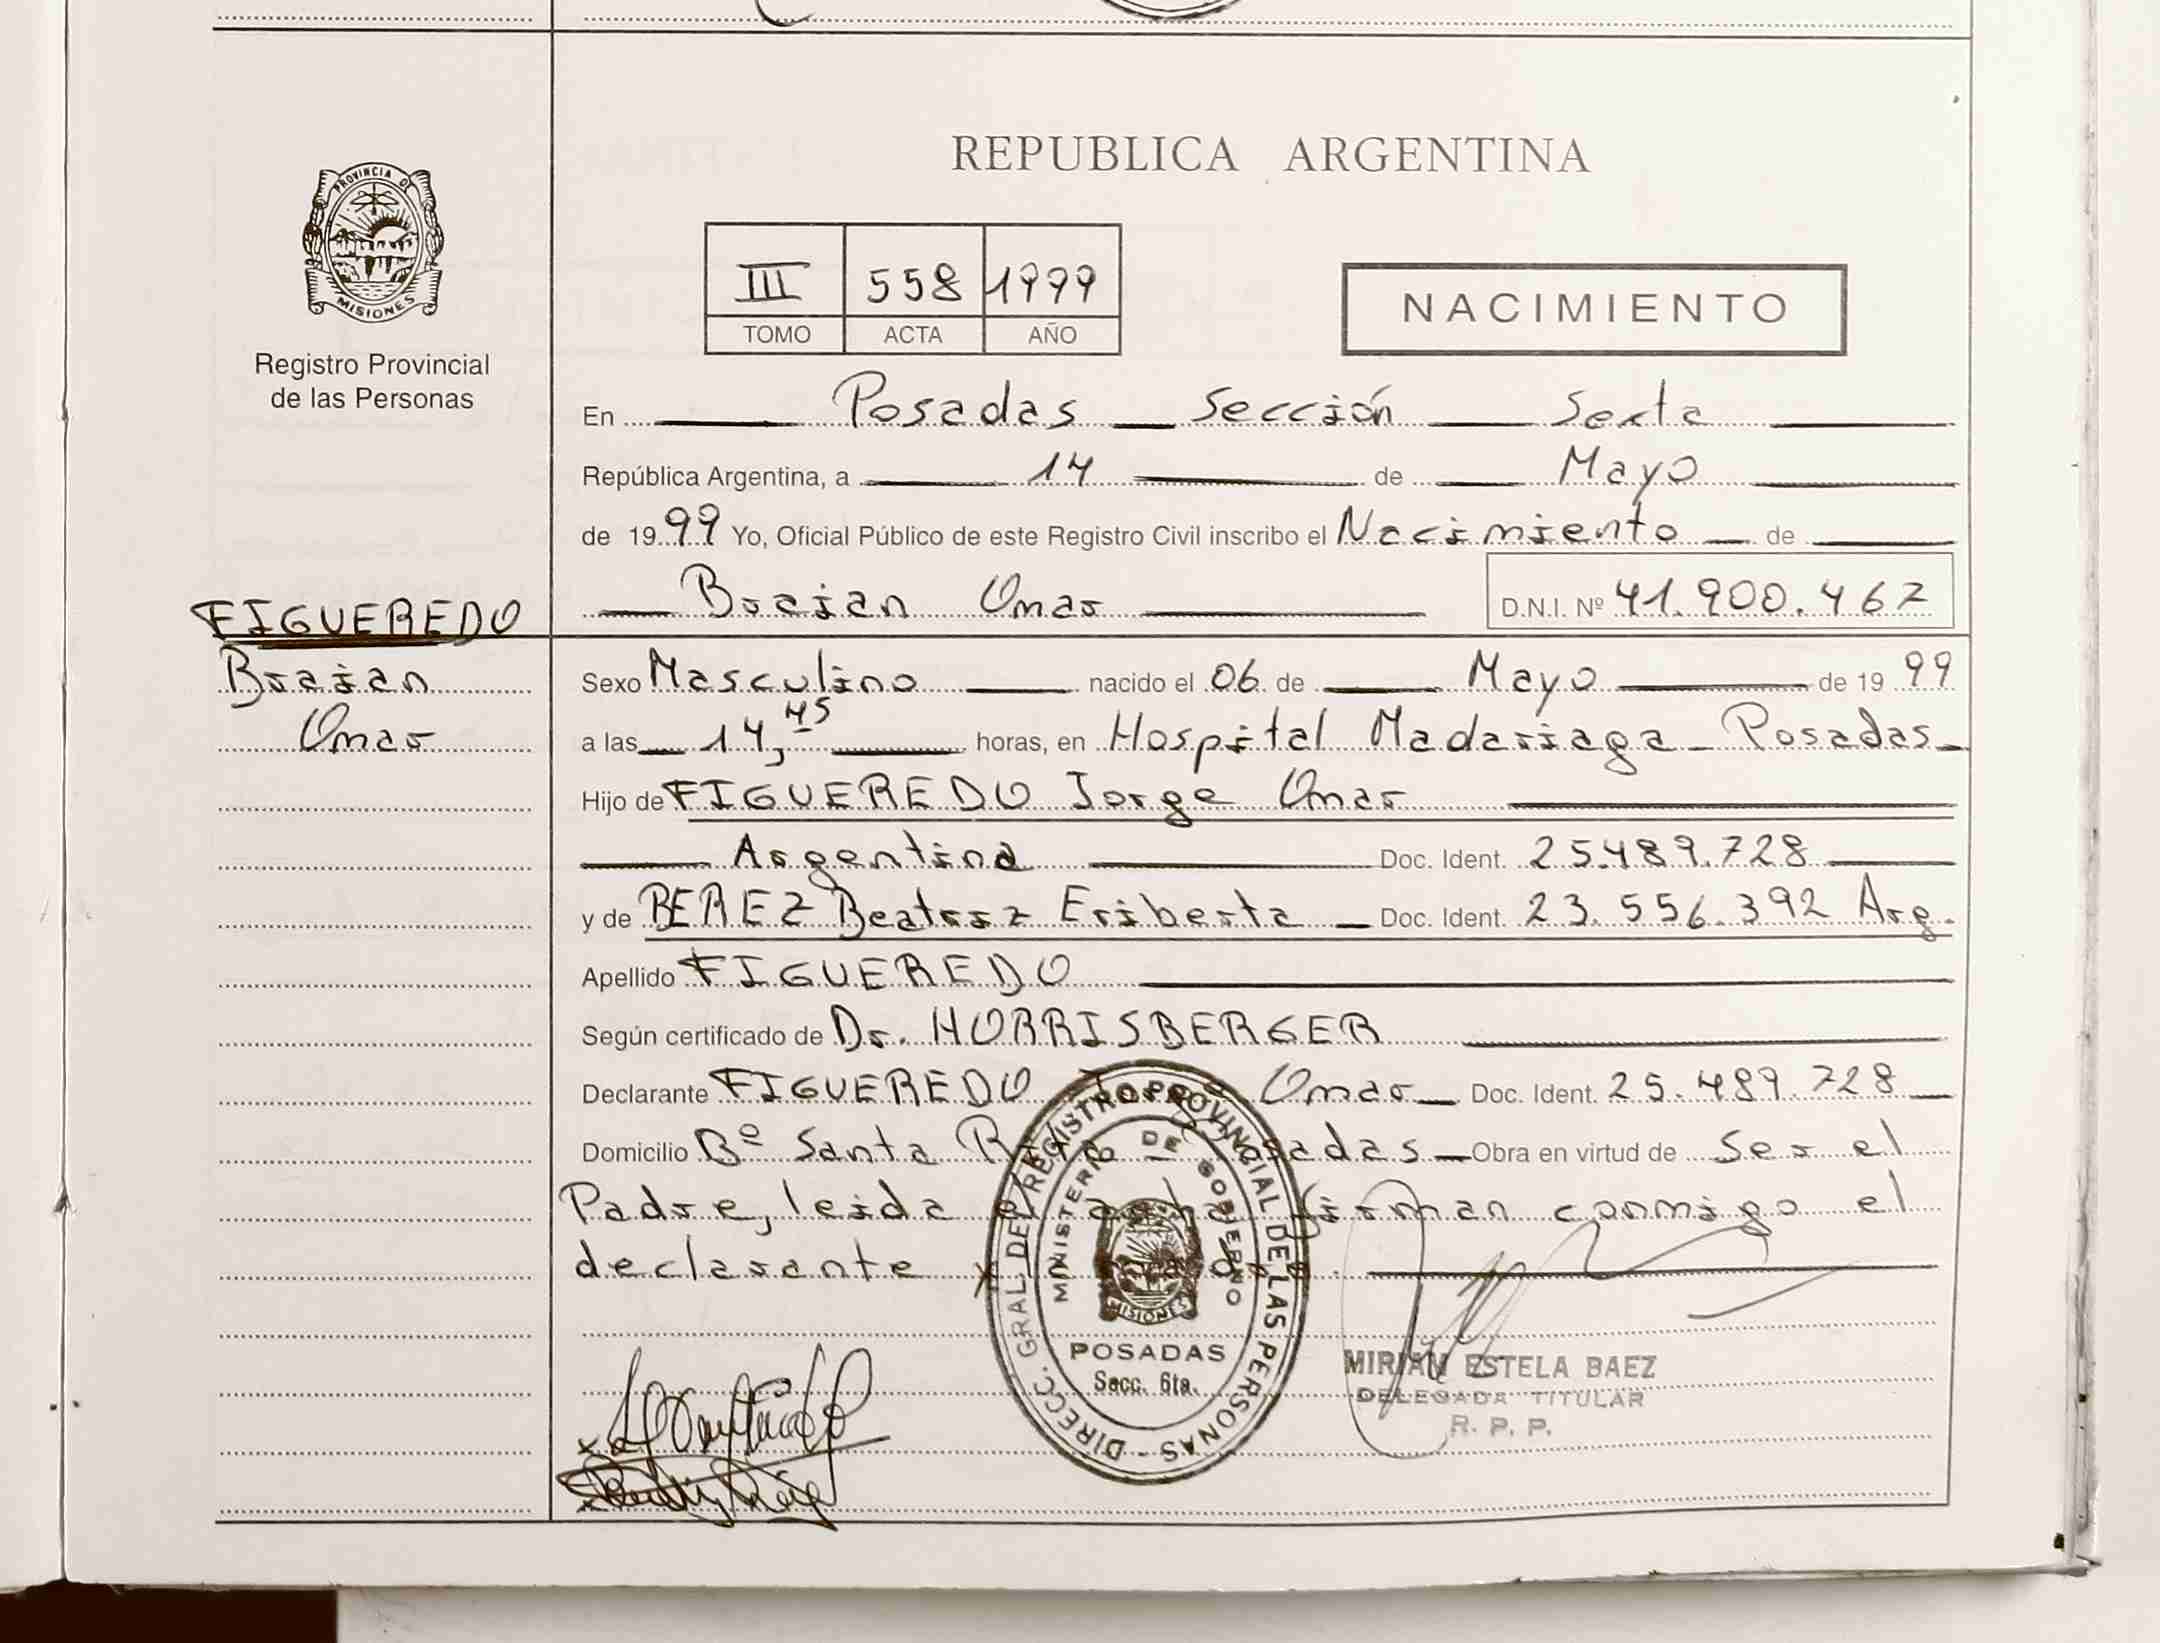 REPUBLICA ARGENTINA
PROVINCIA DE
MISIONES
Registro Provincial
de las Personas
III 558 1999
TOMO ACTA AÑO
NACIMIENTO
En Posadas Sección Sexta
República Argentina, a 14 de Mayo
de 1999 Yo, Oficial Público de este Registro Civil inscribo el Nacimiento de
Braian Omar D.N.I. Nº 41.900.467
FIGUEREDO
Braian
Omar
Sexo Masculino nacido el 06 de Mayo de 1999
a las 14,45 horas, en Hospital Madariaga - Posadas -
Hijo de FIGUEREDO Jorge Omar
Argentina Doc. Ident. 25.489.728
y de BEREZ Beatriz Eriberta - Doc. Ident. 23.556.392 Arg.
Apellido FIGUEREDO
Según certificado de Dr. HORRISBERGER
Declarante FIGUEREDO Jorge Omar - Doc. Ident. 25.489.728
Domicilio Bº Santa Rita - Posadas - Obra en virtud de Ser el
Padre, leida el acta firman conmigo el
declarante
DIRECC. GRAL. DEL REGISTRO PROVINCIAL DE LAS PERSONAS
MINISTERIO DE GOBIERNO
MISIONES
POSADAS
Secc. 6ta.
MIRIAN ESTELA BAEZ
DELEGADA TITULAR
R. P. P.